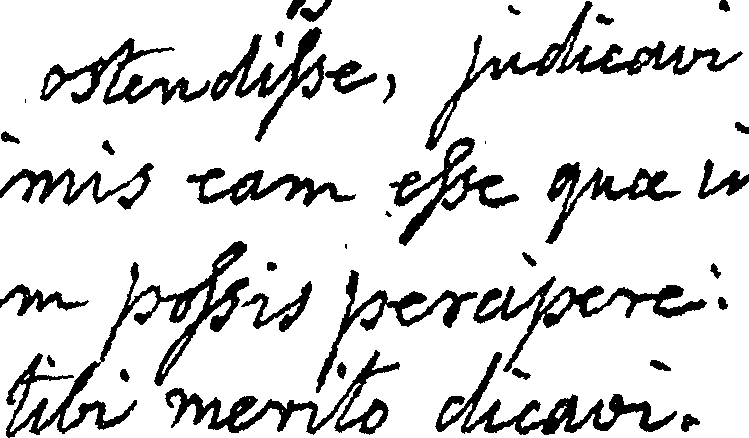 ostendiſse, judicavi
imis eam eſse quæ in
m poſsis percipere:
tibi merito dicavi.